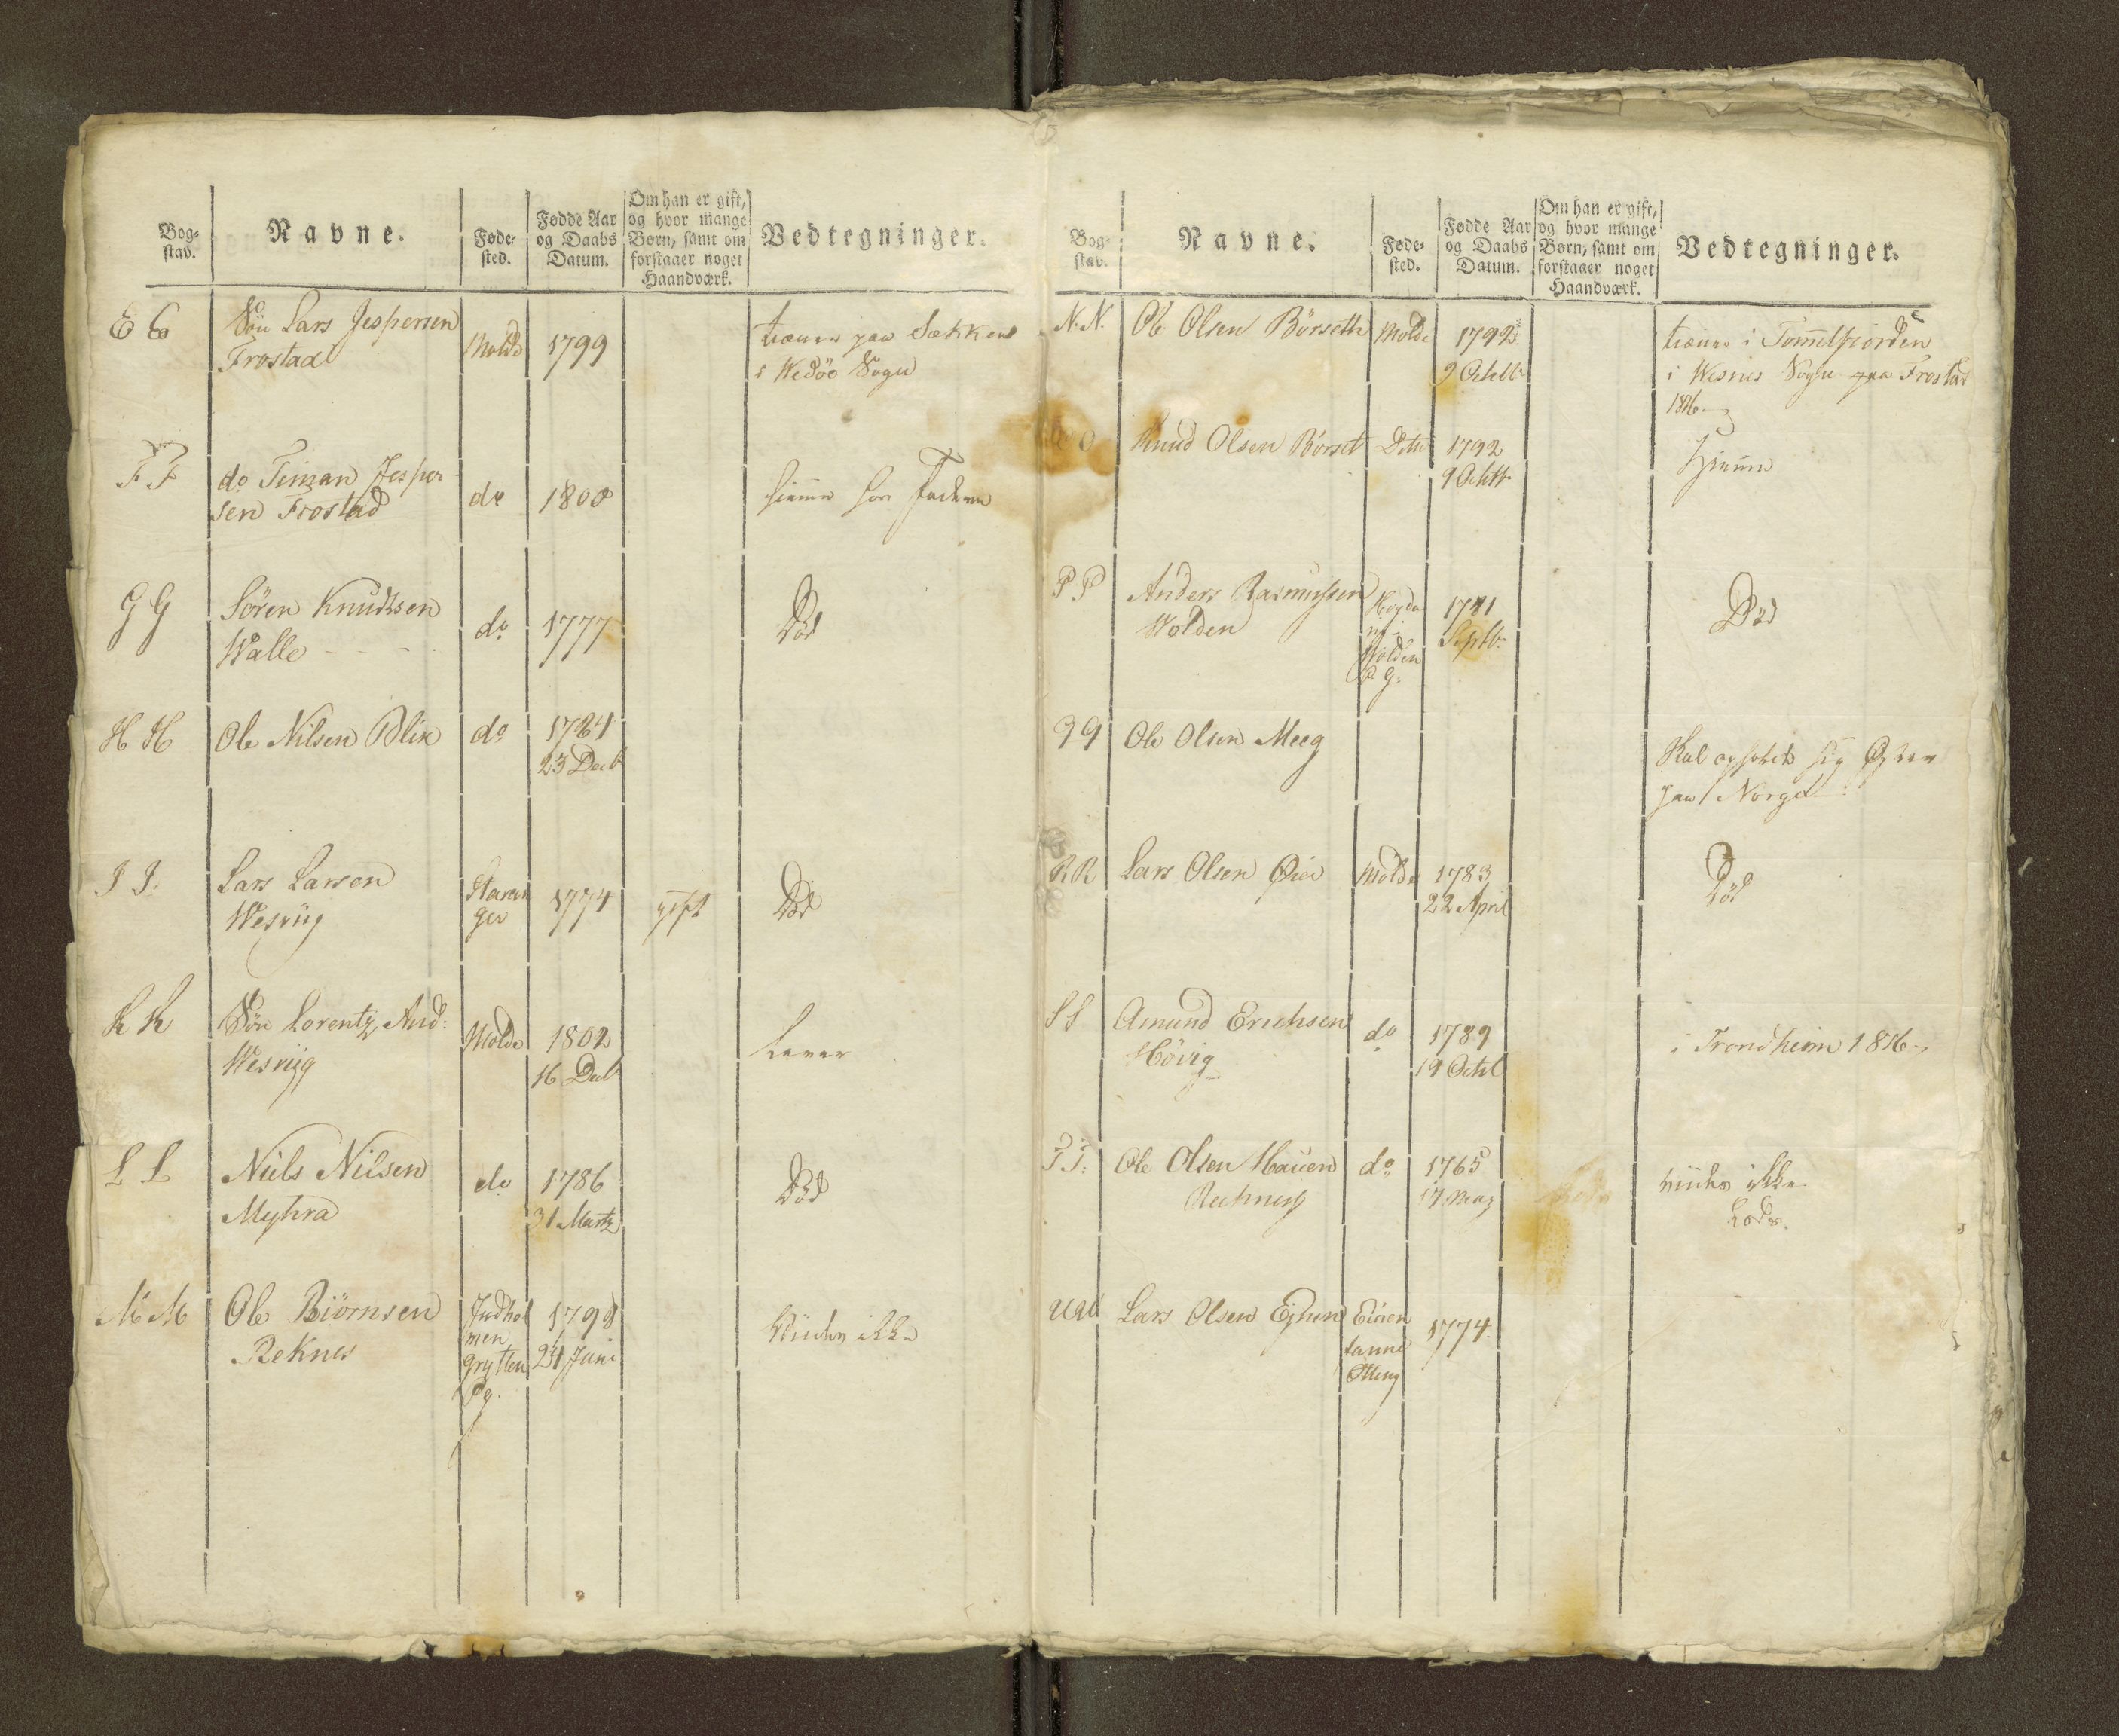 Bog-
stav.
Navne.
Føde-
sted.
Fødde Aar
og Daabs
Datum.
Om han er gift,
og hvor mange
Børn, samt om
forstaaer noget
Haandværk.
Vedtegninger.
E E
Søn Lars Jespersen
Frostad
Molde
1799
tiener paa Sekken
i Wedöe Sogn
F F
do Timan Jesper
sen Frostad
do
1800
hiemme hos Faderen
G G
Sören Knudtsen
Walle
do
1777
Död
H H
Ole Nilsen Blix
do
1764
23 Decb
I I.
Lars Larsen
Wesviig
Stavan
ger
1774
gift
Död
K K
Søn Lorentz And:
Wesviig
Molde
1802
16 Decb
L L
Niels Nilsen
Myhra
do
1786
31 Martz
Död
M M
Ole Biörnsen
Reknes
Indhol
men
Grytten
Pg.
1798
24 Juni
Vides ikke
Bog-
stav.
Navne.
Føde-
sted.
Fødde Aar
og Daabs
Datum.
Om han er gift,
og hvor mange
Børn, samt om
forstaaer noget
Haandværk.
Vedtegninger.
N. N.
Ole Olsen Börseth
Molde
1792
9 Octbr
tiener i Tomelfiorden
i Wesnes Sogn paa Frostad
1816
O
Knud Olsen Börset
Ditto
1792
9 Octbr
Hiemme
P P
Anders Rasmussen
Wolden
Wolden
P g:
1741
Septbr
Död
Q Q
Ole Olsen Meeg
Skal opholde sig
paa Norge
R R
Lars Olsen Öien
Molde
1783
22 April
Död
S S
Amund Erichsen
Hövig
do
1789
19 Octbr
i Trondheim 1816
T T.
Ole Olsen Hauen
Rechness
do
1765
17 May
vides ikke
U U
Lars Olsen Ejhen
1774